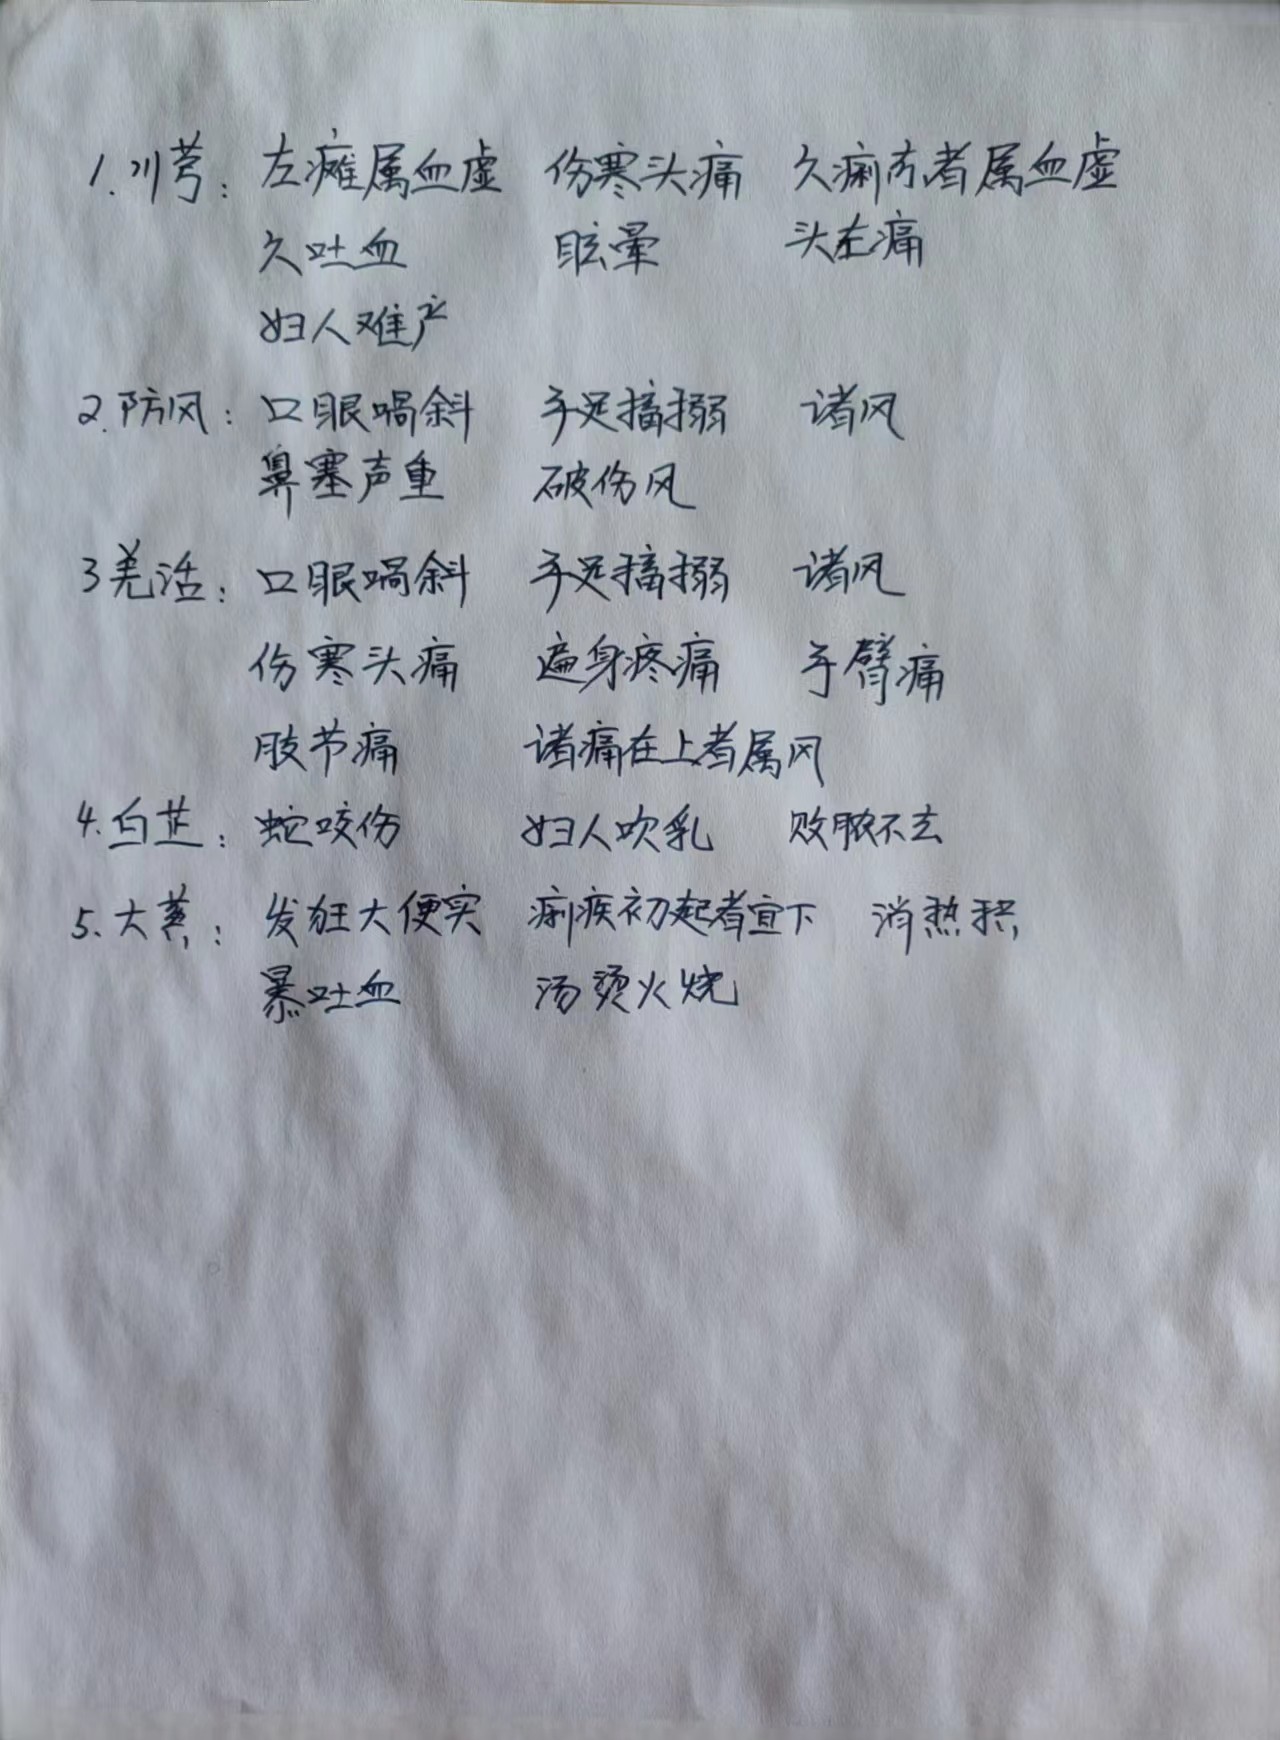 1.川芎：左瘫属血虚 伤寒头痛 久痢赤者属血虚
久吐血 眩晕 头左痛
妇人难产
2.防风：口眼喎斜 手足搐搦 诸风
鼻塞声重 破伤风
3羌活：口眼喎斜 手足搐搦 诸风
伤寒头痛 遍身疼痛 手臂痛
肢节痛 诸痛在上者属风
4.白芷：蛇咬伤 妇人吹乳 败脓不去
5.大黄：发狂大便实 痢疾初起者宜下 消热积
暴吐血 汤烫火烧